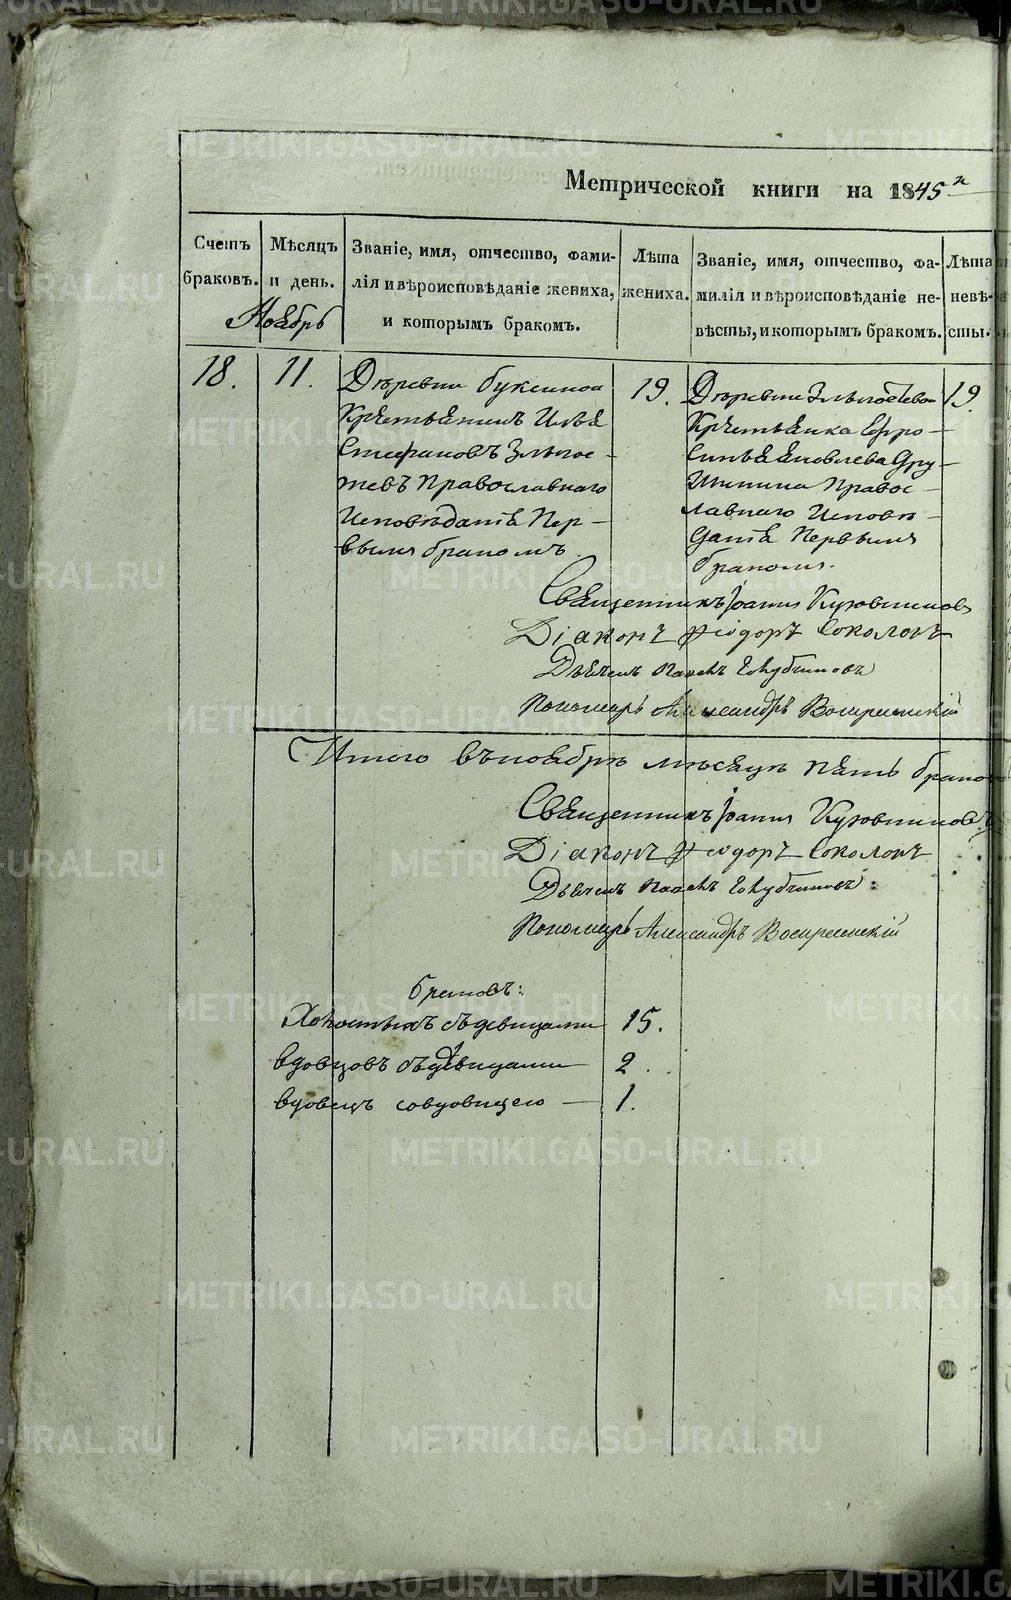 Метрической книги на 1845й
Счетъ браковъ.
Мѣсяцъ и день.
Званіе, имя, отчество, фами-
лія и вѣроисповѣданіе жениха,
и которымъ бракомъ.
Лѣта
жениха.
Званіе, имя, отчество, фа-
милія и вѣроисповѣданіе не-
вѣсты, и которымъ бракомъ.
Лѣта
невѣ-
сты.
Ноябрь
18.
11.
Деревни
Крестьянинъ Илья
Стефановъ
Православнаго
Исповѣданія Пер-
вымъ бракомъ
19.
Деревни
Крестьянка Ефро-
синья Яковлева
Правос-
лавнаго Исповѣ-
данія Первымъ
бракомъ.
19.
Священникъ Іоаннъ
Діаконъ Ѳеодоръ Соколовъ
Дьячекъ
Пономарь Александръ Воскресенскій
Итого въ ноябрѣ мѣсяцѣ пять брако
Священникъ Іоаннъ
Діаконъ Ѳеодоръ Соколовъ
Дьячекъ
Пономарь Александръ Воскресенскій
Браковъ:
Холостыхъ съ девицами 15.
вдовцовъ съ девицами 2.
вдовецъ со вдовицею — 1.
METRIKI.GASO-URAL.RU